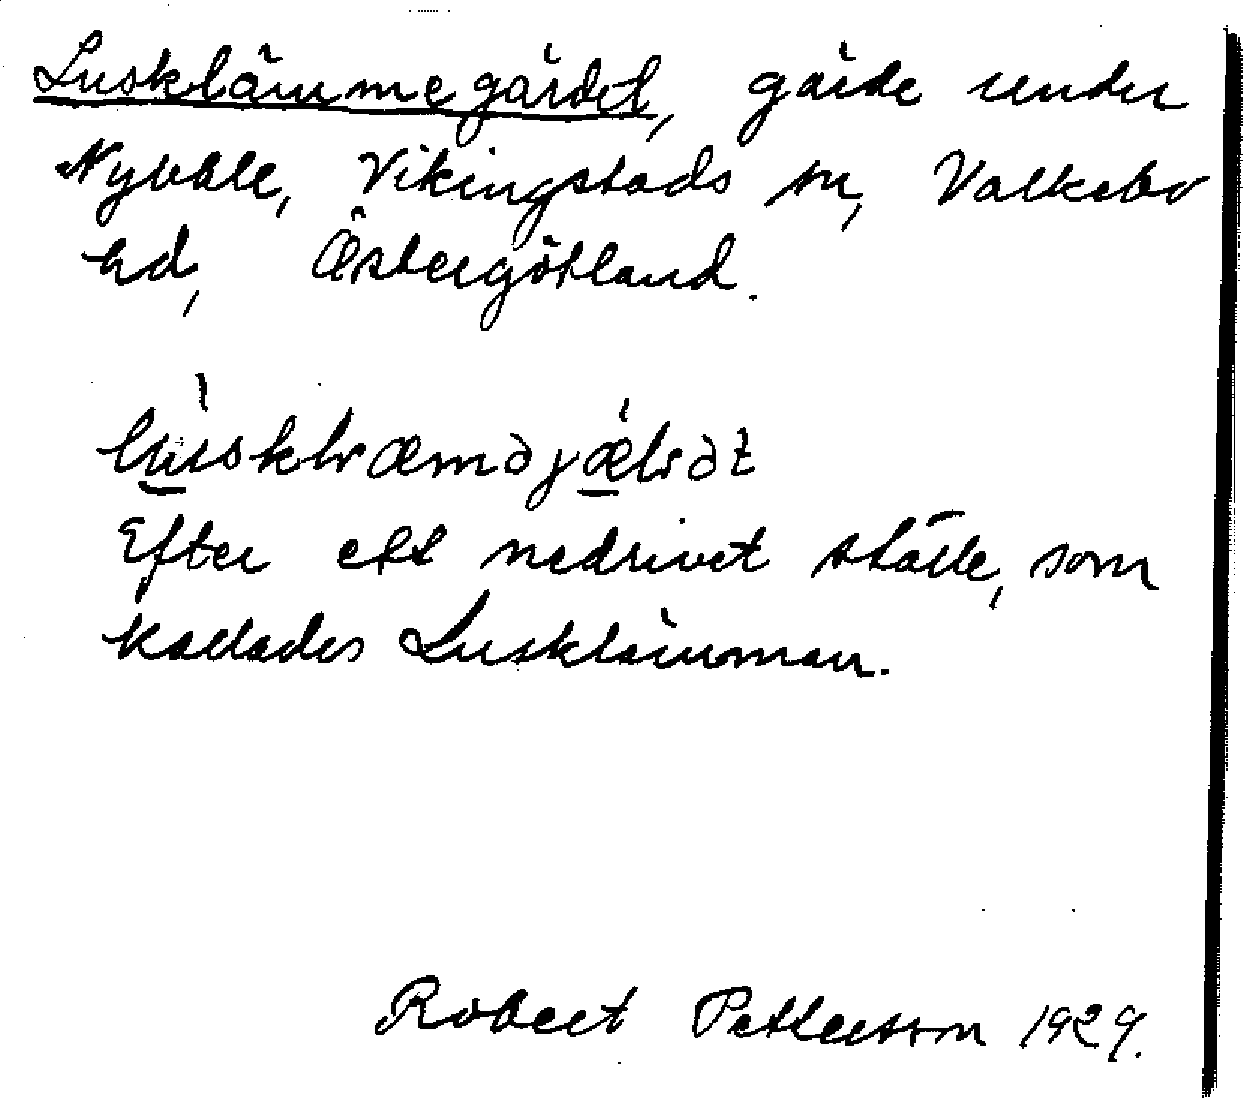 Lusklämmegärdet, gärde under
Nybble, Vikingstads sn, Valkebo
hd, Östergötland.
Efter ett nedrivet ställe, som
kallades Lusklämman.
Robert Petterson 1929.